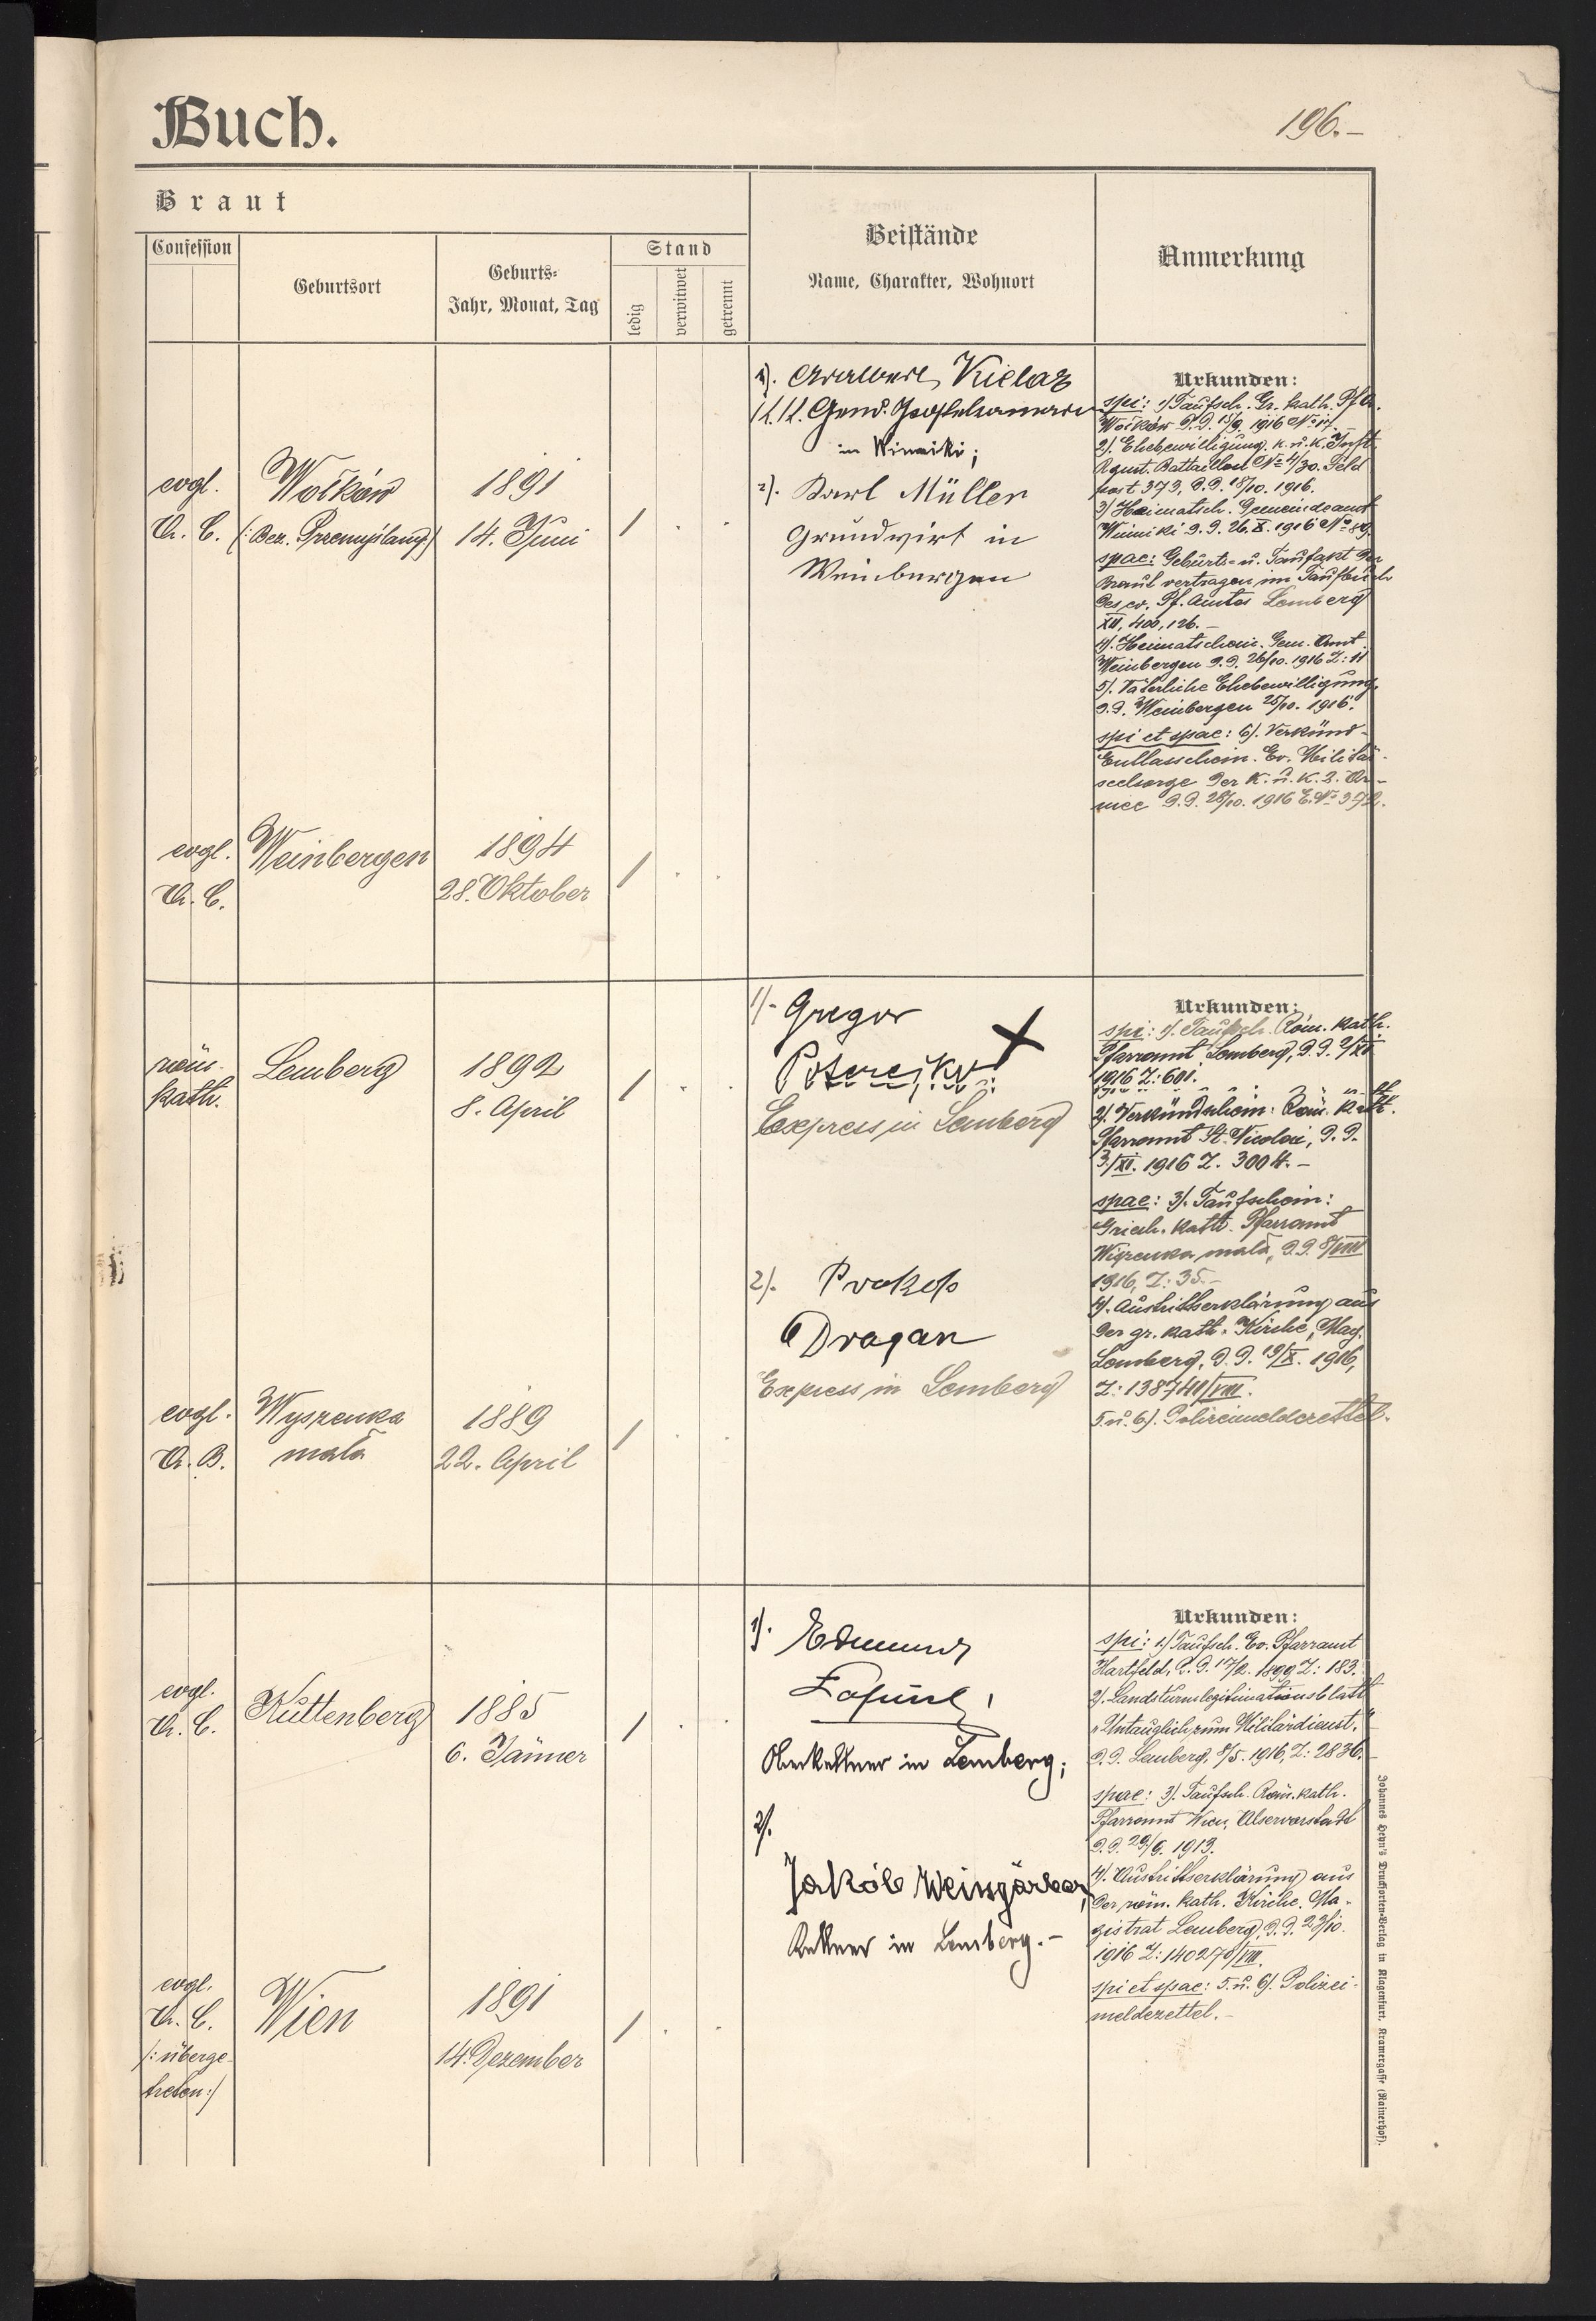 Buch.
196.-
Braut
Confession
Geburtsort
Geburts-
Jahr, Monat, Tag
Stand
ledig
verwitwet
getrennt
Beistände
Name, Charakter, Wohnort
Anmerkung
evgl.
A. C.
Wołków
(: Bez. Przemyślany:)
1891
14. Juni
1
1). Kielar
K. K. Gend.
in Winniki;
2). Karl Müller
Grundwirt in
Weinbergen
Urkunden:
spi: 1) Taufsch. Gr. kath. Pfa.
Wołków d.d. 15/9. 1916 No 17.
2). Ehebewilligung. k. u. k.
Baont. Battaillon No 4/30. Feld
post 373, d.d. 18/10. 1916.
3) Heimatsch. Gemeindeamt
Winniki d.d. 26. X. 1916 No 89.
spae: Geburts- u. Taufakt der
Braut vertragen im Taufbuch
des ev. Pf. Amtes Lemberg
XII, 400, 126.-
4). Heimatschein. Gem. Amt
Weinbergen d.d. 26/10. 1916 Z: 11
5). Väterliche Ehebewilligung,
d.d. Weinbergen 25/10. 1916.
spi et spae: 6). Verkünd-
Entlasschein. Ev. Militär-
seelsorge der k. u. k. 2. Ar-
mee d.d. 28/10. 1916 E. No
evgl.
A. C.
Weinbergen
1894
28. Oktober
1
röm.
kath.
Lemberg
1892
8. April
1
1). Gregor
Poterejko
Express in Lemberg
2). Prokop
Dragan
Express in Lemberg
Urkunden:
spi: 1). Taufsch. Röm. kath.
Pfarramt Lemberg, d.d. 2/XI
1916 Z: 601.
2). Verkündschein: Röm. kath.
Pfarramt St. Nicolai, d.d.
3/XI. 1916 Z. 3004.-
spae: 3). Taufschein:
Griech. kath. Pfarramt
mała, d.d. 8/VIII
1916, Z: 35.-
4). Austrittserklärung aus
der gr. kath. Kirche, Mag.
Lemberg, d.d. 19/X. 1916,
Z: 138740/VIII.
5. u. 6). Polizeimeldezettel.
evgl.
A. B.
Wyszenka
mała
1889
22. April
1
evgl.
A. C.
Kuttenberg
1885
6. Jänner
1
1). Edmund
Oberkellner in Lemberg;
2).
Jakób Weingärtner,
Kellner in Lemberg.-
Urkunden:
spi: 1) Taufsch. Ev. Pfarramt
Hartfeld, d.d. 17/2. 1899 Z: 183.
2). Landsturmlegitimationsblatt
"Untauglich zum Militärdienst,"
d.d. Lemberg, 8/5. 1916, Z: 2836.-
spae: 3). Taufsch. Röm. kath.
Pfarramt Wien, Alservorstadt
d.d. 29/9. 1913.
4). Austrittserklärung aus
der röm. kath. Kirche. Ma-
gistrat Lemberg, d.d. 23/10.
1916 Z: 140270/VIII.
spi et spae: 5. u. 6). Polizei-
meldezettel.-
evgl.
A. C.
/: überge-
treten:/
Wien
1891
14. Dezember
1
Johannes Heyn's Drucksorten-Verlag in Klagenfurt, Kramergasse (Rainerhof).